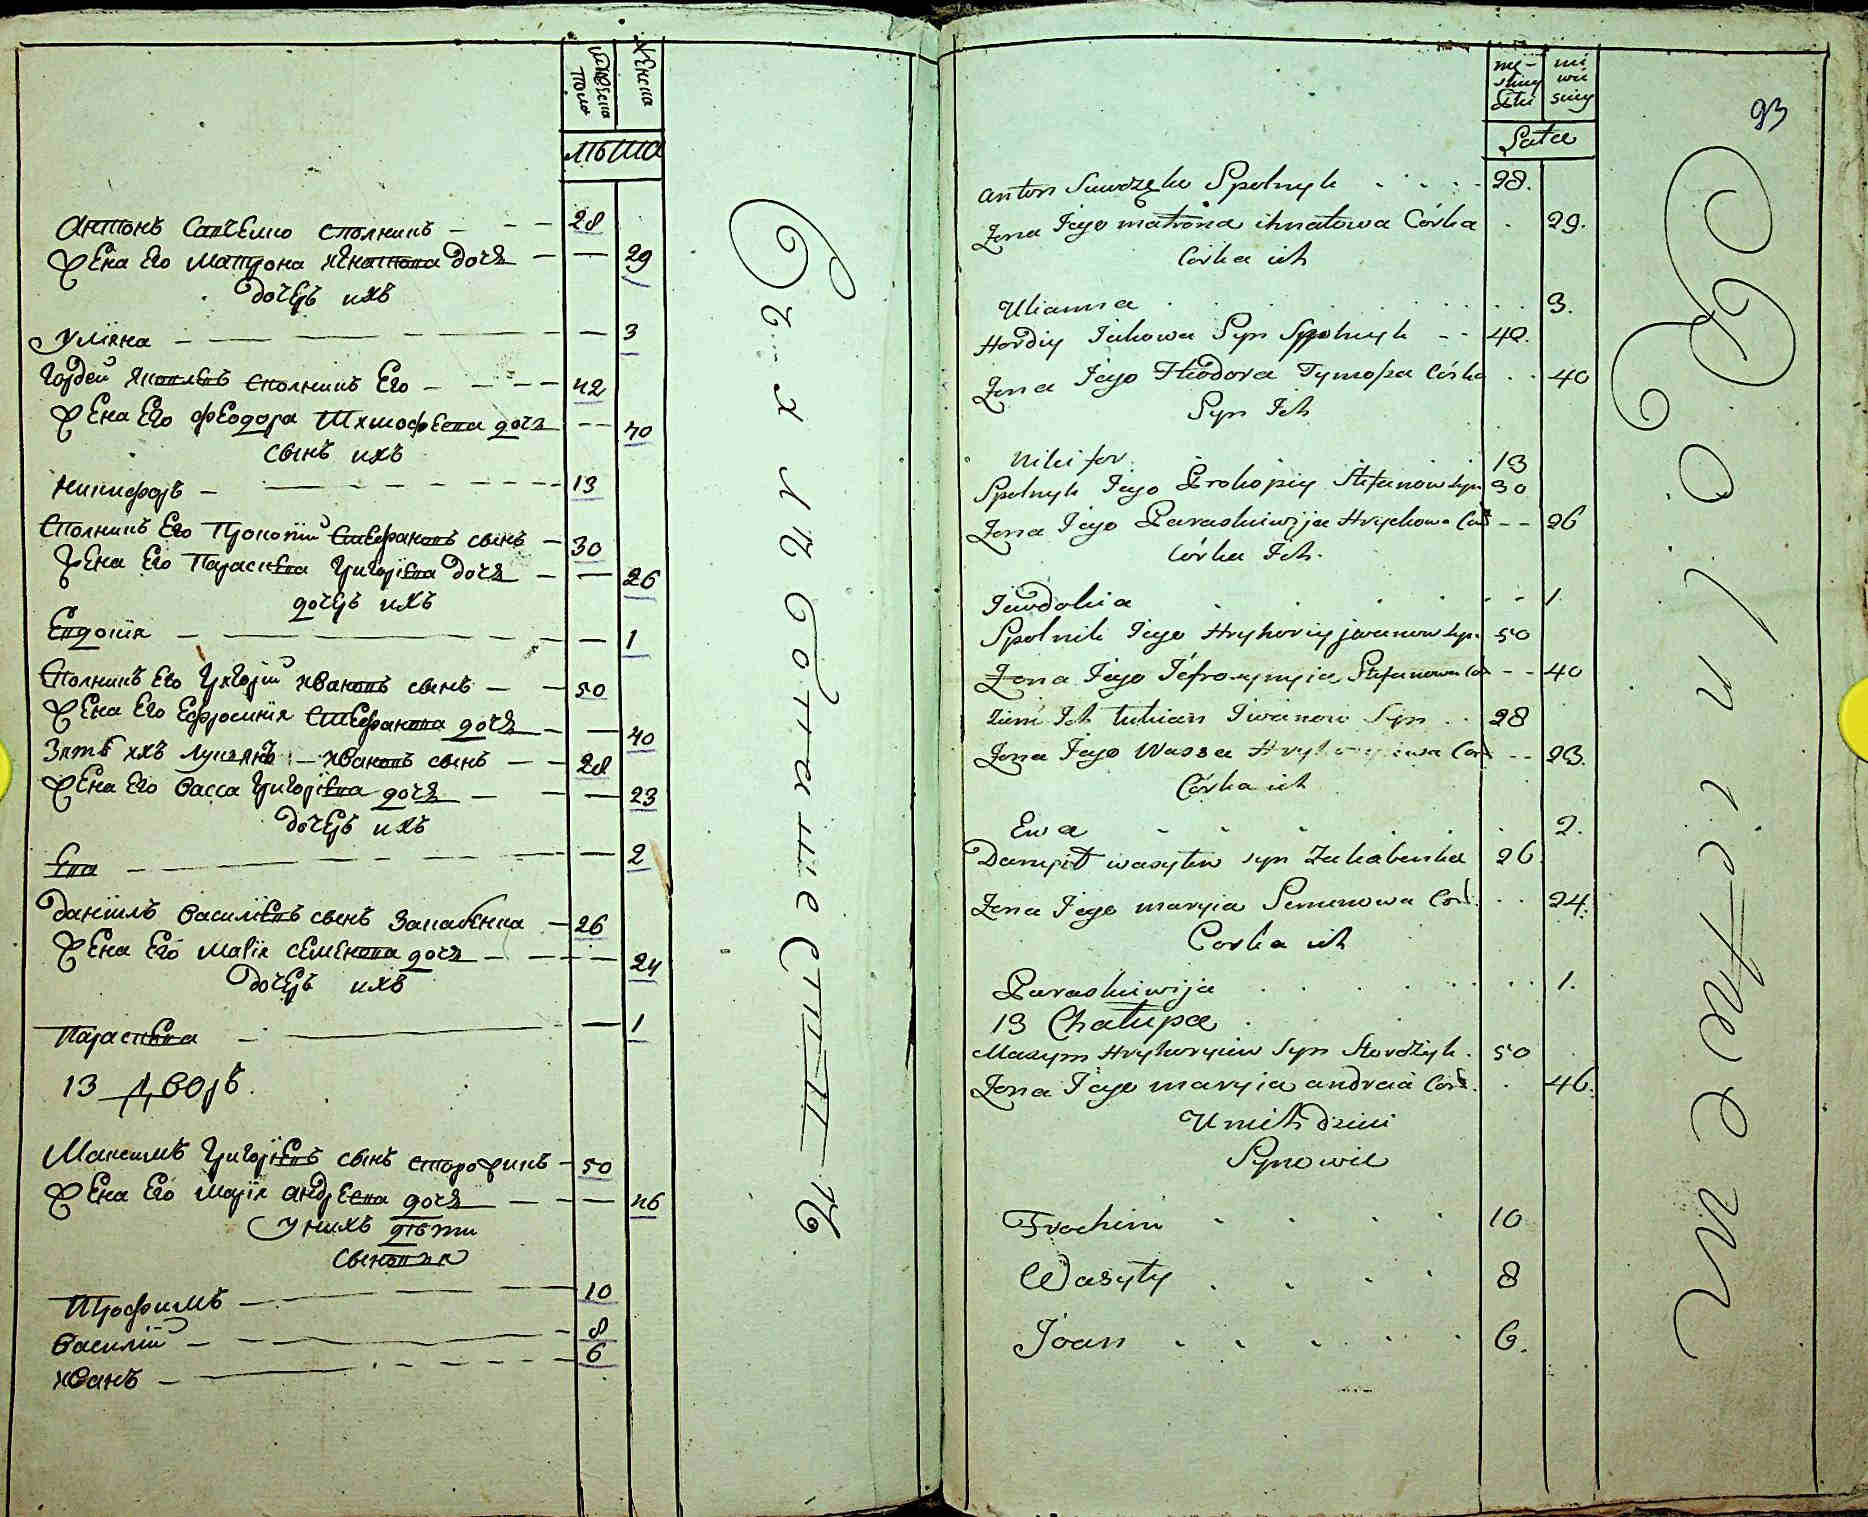 мужеска пола
женска
лѣта
Антонъ Савчемко сполникъ 28
Жена Его Матрона Игнатова дочъ 29
дочеръ ихъ
Улїяна 3
Гордей Яковлевъ сполникъ Его 42
Жена Его Феодора Тимофеева дочъ 40
сынъ ихъ
Никифоръ 13
Сполникъ Его Прокопїй Стефановъ сынъ 30
Жена Его Параскева Григорїева дочъ 26
дочеръ ихъ
Евдокїя 1
Сполникъ Его Григорїй Ивановъ сынъ 50
Жена Его Ефросинїя Стефанова дочъ 40
Зять ихъ Лукїянъ Ивановъ сынъ 28
Жена Его Васса Григорїева дочъ 23
дочеръ ихъ
Ева 2
Данїилъ Василїевъ сынъ Закабенка 26
Жена Его Марїя Семенова дочъ 24
дочеръ ихъ
Параскева 1
13 Дворъ.
Максимъ Григорїевъ сынъ сторожикъ 50
Жена Его Марїя Андреева дочъ 46
У нихъ дѣти
сыновья
Трофимъ 10
Василїй 8
Иванъ 6
93
Lata
Anton Sawczęko Spolnyk 28.
Zona Jego matrona ihnatowa Córka 29.
Córka ich
Ulianna 3.
Hordiy Jakowa Syn Spolnyk 42.
Zona Jego Theodora Tymofia Córka 40
Syn Ich
Nikifor 13
Spolnyk Jego Prokopiy Stefanow syn 30
Zona Jego Paraskiwija Hryhowa Cor 26
Córka Ich.
Jewdokia 1.
Spolnik Jego Hryhoriy jwanow syn 50
Zona Jego Jefrosynyia Stefanowa Cor 40
Zieńć Ich Lukian Jwanow Syn 28
Zona Jego Wassa Hryhoryiewa Cor 23.
Córka ich
Ewa 2.
Danyił wasylew syn Zakabenka 26.
Zona Jego maryia Semenowa Cor. 24.
Corka ich
Paraskiwija 1.
13 Chałupa
Maxym Hryhoryiew Syn Storożyk. 50
Zona Jego maryia andreia Cor. 46.
U nich dzieci
Synowie
Trochim 10
Wasyly 8
Joan 6.